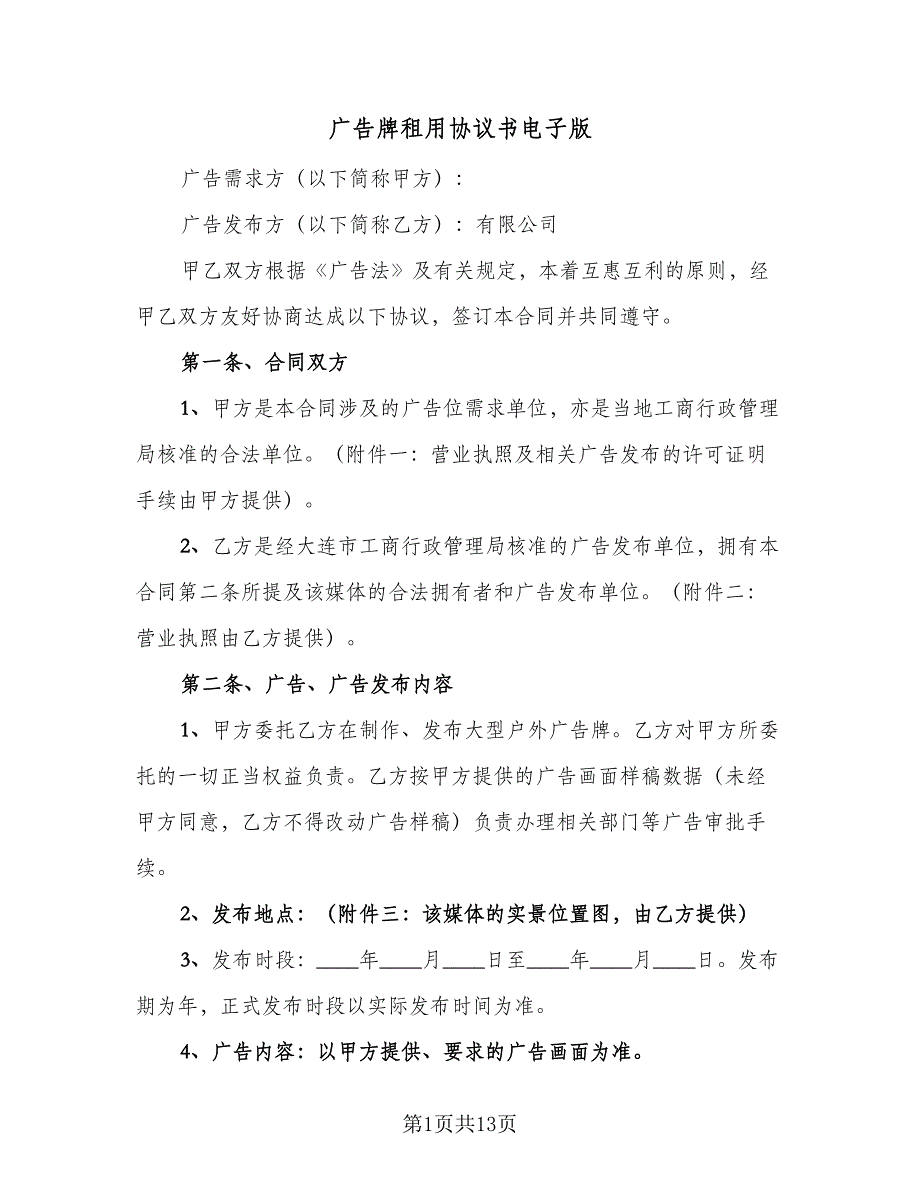 广告牌租用协议书电子版
广告需求方（以下简称甲方）：
广告发布方（以下简称乙方）：有限公司
甲乙双方根据《广告法》及有关规定，本着互惠互利的原则，经
甲乙双方友好协商达成以下协议，签订本合同并共同遵守。
第一条、合同双方
1、甲方是本合同涉及的广告位需求单位，亦是当地工商行政管理
局核准的合法单位。（附件一：营业执照及相关广告发布的许可证明
手续由甲方提供）。
2、乙方是经大连市工商行政管理局核准的广告发布单位，拥有本
合同第二条所提及该媒体的合法拥有者和广告发布单位。（附件二：
营业执照由乙方提供）。
第二条、广告、广告发布内容
1、甲方委托乙方在制作、发布大型户外广告牌。乙方对甲方所委
托的一切正当权益负责。乙方按甲方提供的广告画面样稿数据（未经
甲方同意，乙方不得改动广告样稿）负责办理相关部门等广告审批手
续。
2、发布地点：（附件三：该媒体的实景位置图，由乙方提供）
3、发布时段：____年____月____日至____年____月____日。发布
期为年，正式发布时段以实际发布时间为准。
4、广告内容：以甲方提供、要求的广告画面为准。
第1页共13页